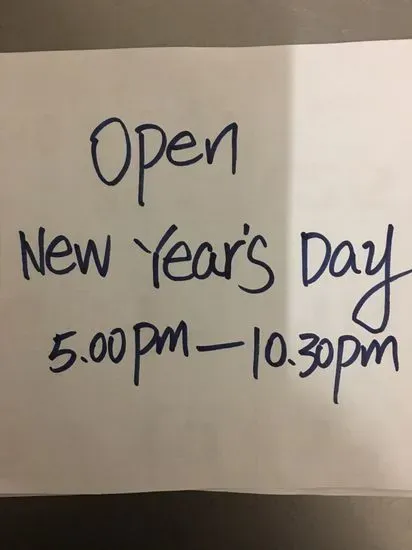 Open
New Year's Day
5.00pm — 10.30pm